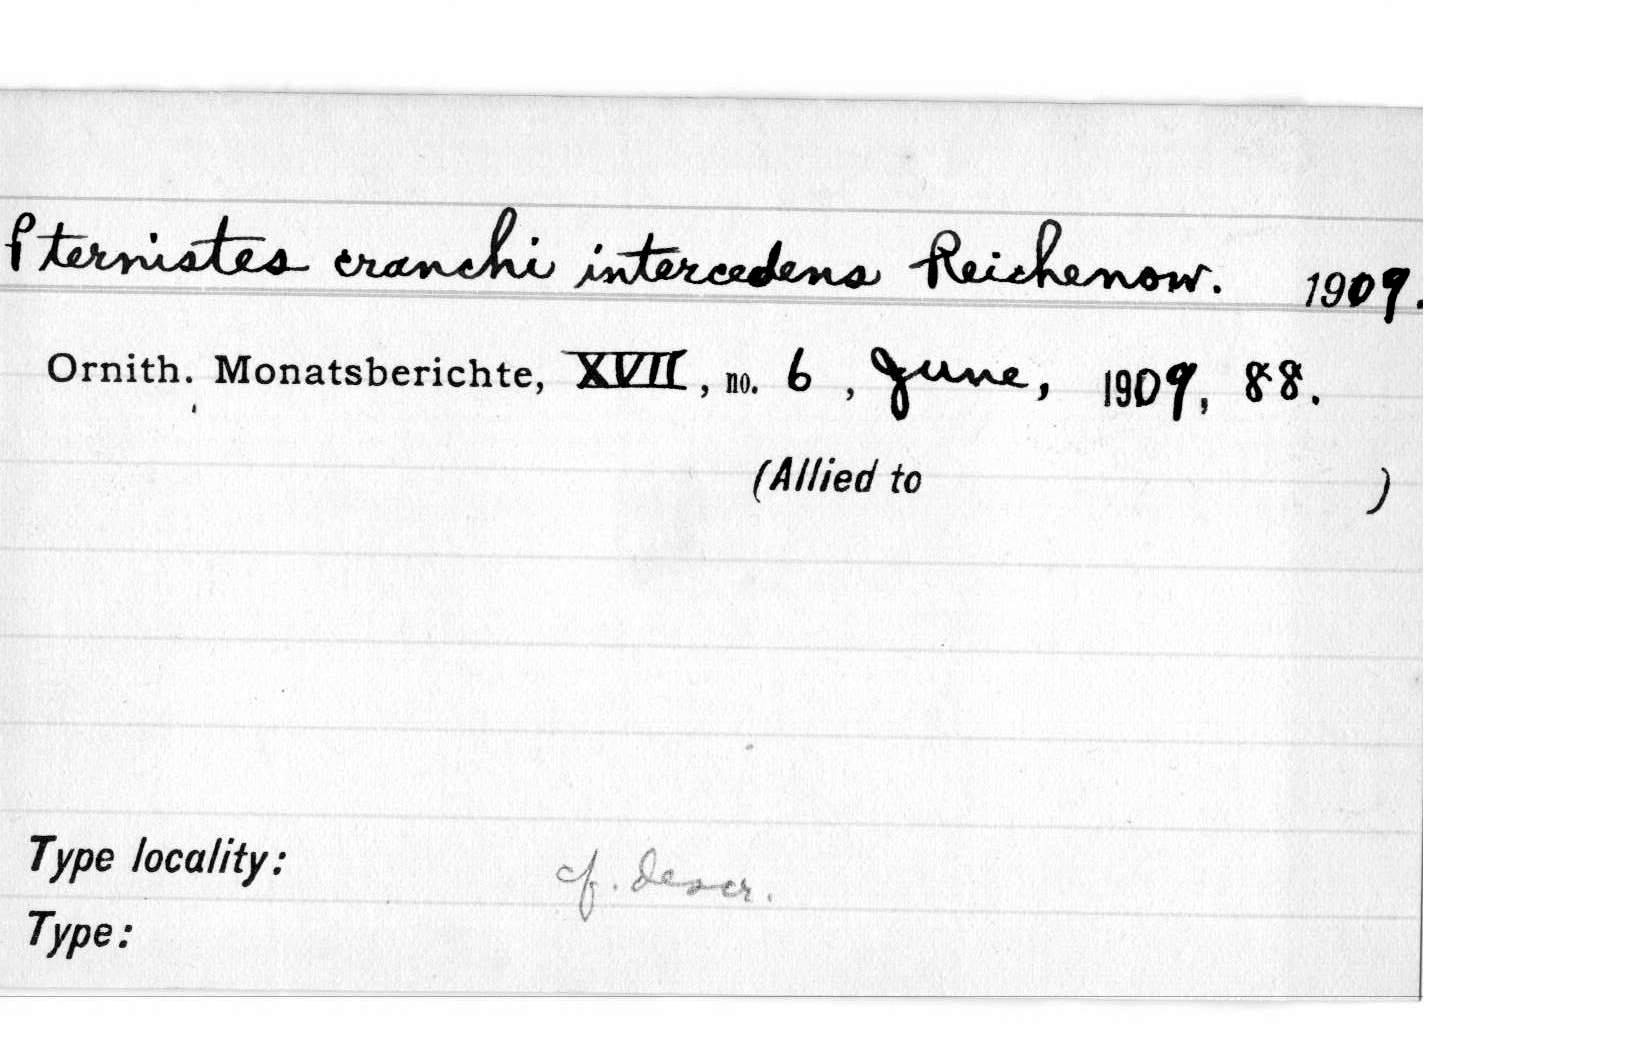 Pternistes cranchi intercedens Reichenow. 1909.
Ornith. Monatsberichte, XVII, no. 6, June, 1909, 88.
(Allied to )
Type locality: cf. descr.
Type: